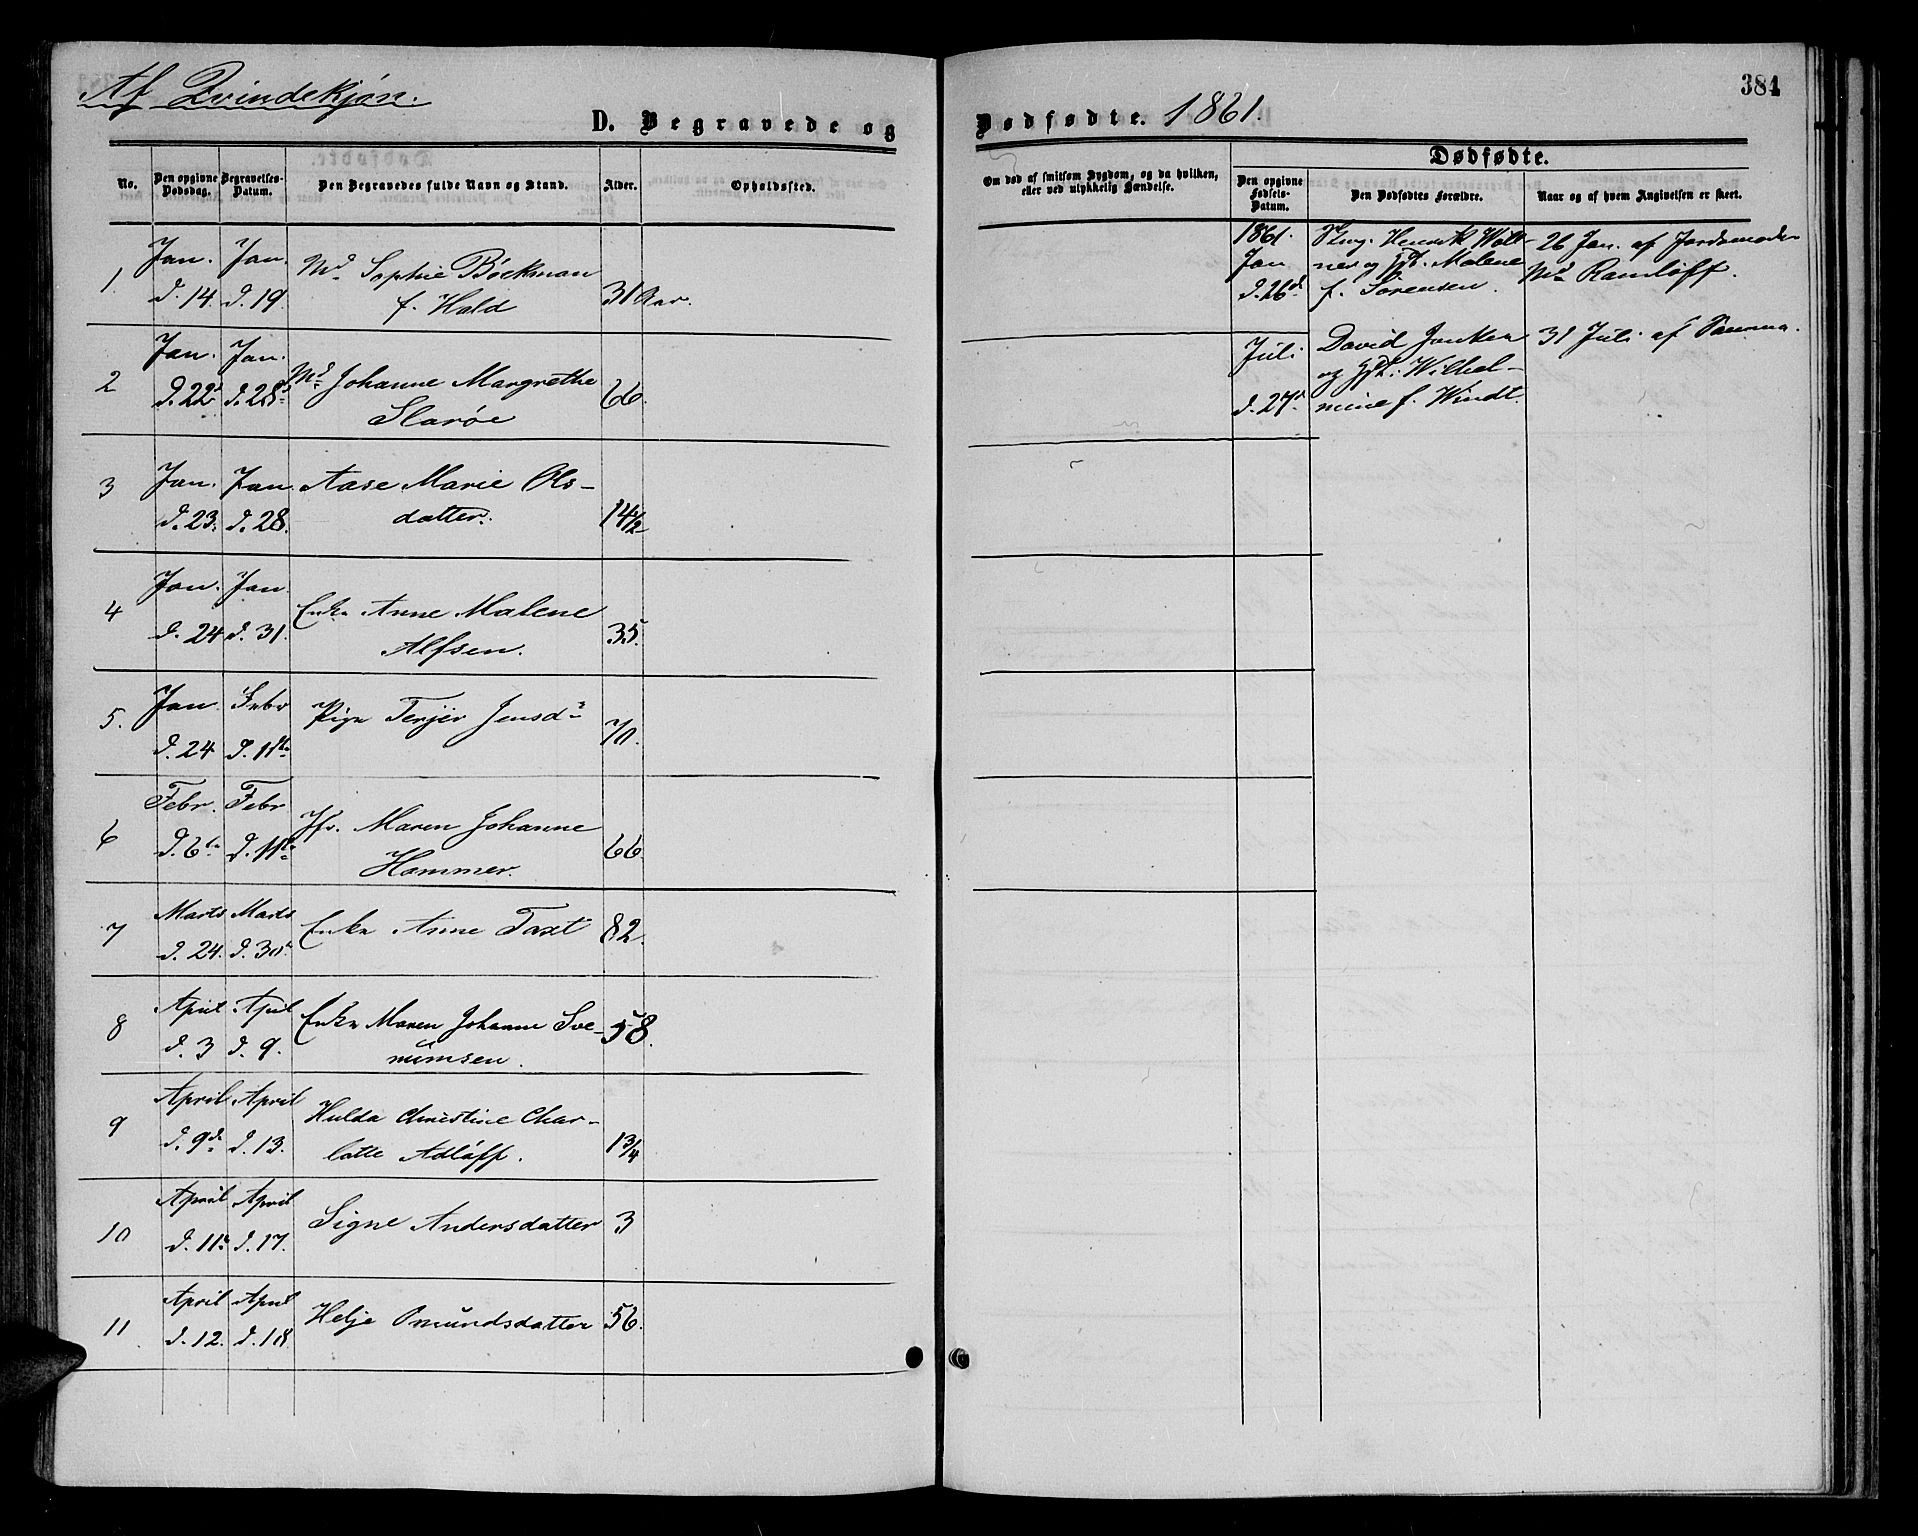 Af Qvindekjøn.
D. Begravede og
No.
Den opgivne Dødsdag.
Begravelses-Datum.
Den Begravedes fulde Navn og Stand.
Alder.
Opholdssted.
1 Jan. Jan. Md Sophie Böckman
d. 14. d. 19. f. Hald 31 Aar.
2 Jan. Jan. Md Johanne Margrethe
d. 22 d. 28 Slarøe 66.
3 Jan. Jan. Aase Marie Ols-
d. 23. d. 28. datter. 14 1/2
4 Jan. Jan. Enke Anne Malene
d. 24 d. 31. Alfsen. 35.
5. Jan. Febr Pige Terjer Jensd.
d. 24 d. 11te 70.
6 Febr. Febr Jfr. Maren Johanne
d. 6te d. 11te Hammer. 66.
7 Marts Marts Enke Anne Taxt 82.
d. 24. d. 30.
8 April April Enke Maren Johanne Sve-
d. 3 d. 9. numsen. 58.
9 April April Hulda Christine Char-
d. 9de d. 13. lotte Adløff. 1 3/4
10 April April Signe Andersdatter 3
d. 11te d. 17.
11 April April Helje Omundsdatter 56.
d. 12. d. 18
384
Dødfødte. 1861.
Om død af smitsom Sygdom, og da hvilken, eller ved ulykkelig Hændelse.
Dødfødte.
Den opgivne Fødsels-Datum.
Den Dødfødtes Forældre.
Naar og af hvem Angivelsen er skeet.
1861. Henrik Wall- 26 Jan. af Jordemoder
Jan ner og Malene Md Ramløff.
d. 26d f. Sørensen.
Juli David Jonken 31 Juli af Samme.
og Wilhel-
d. 27d mine f. Windt.